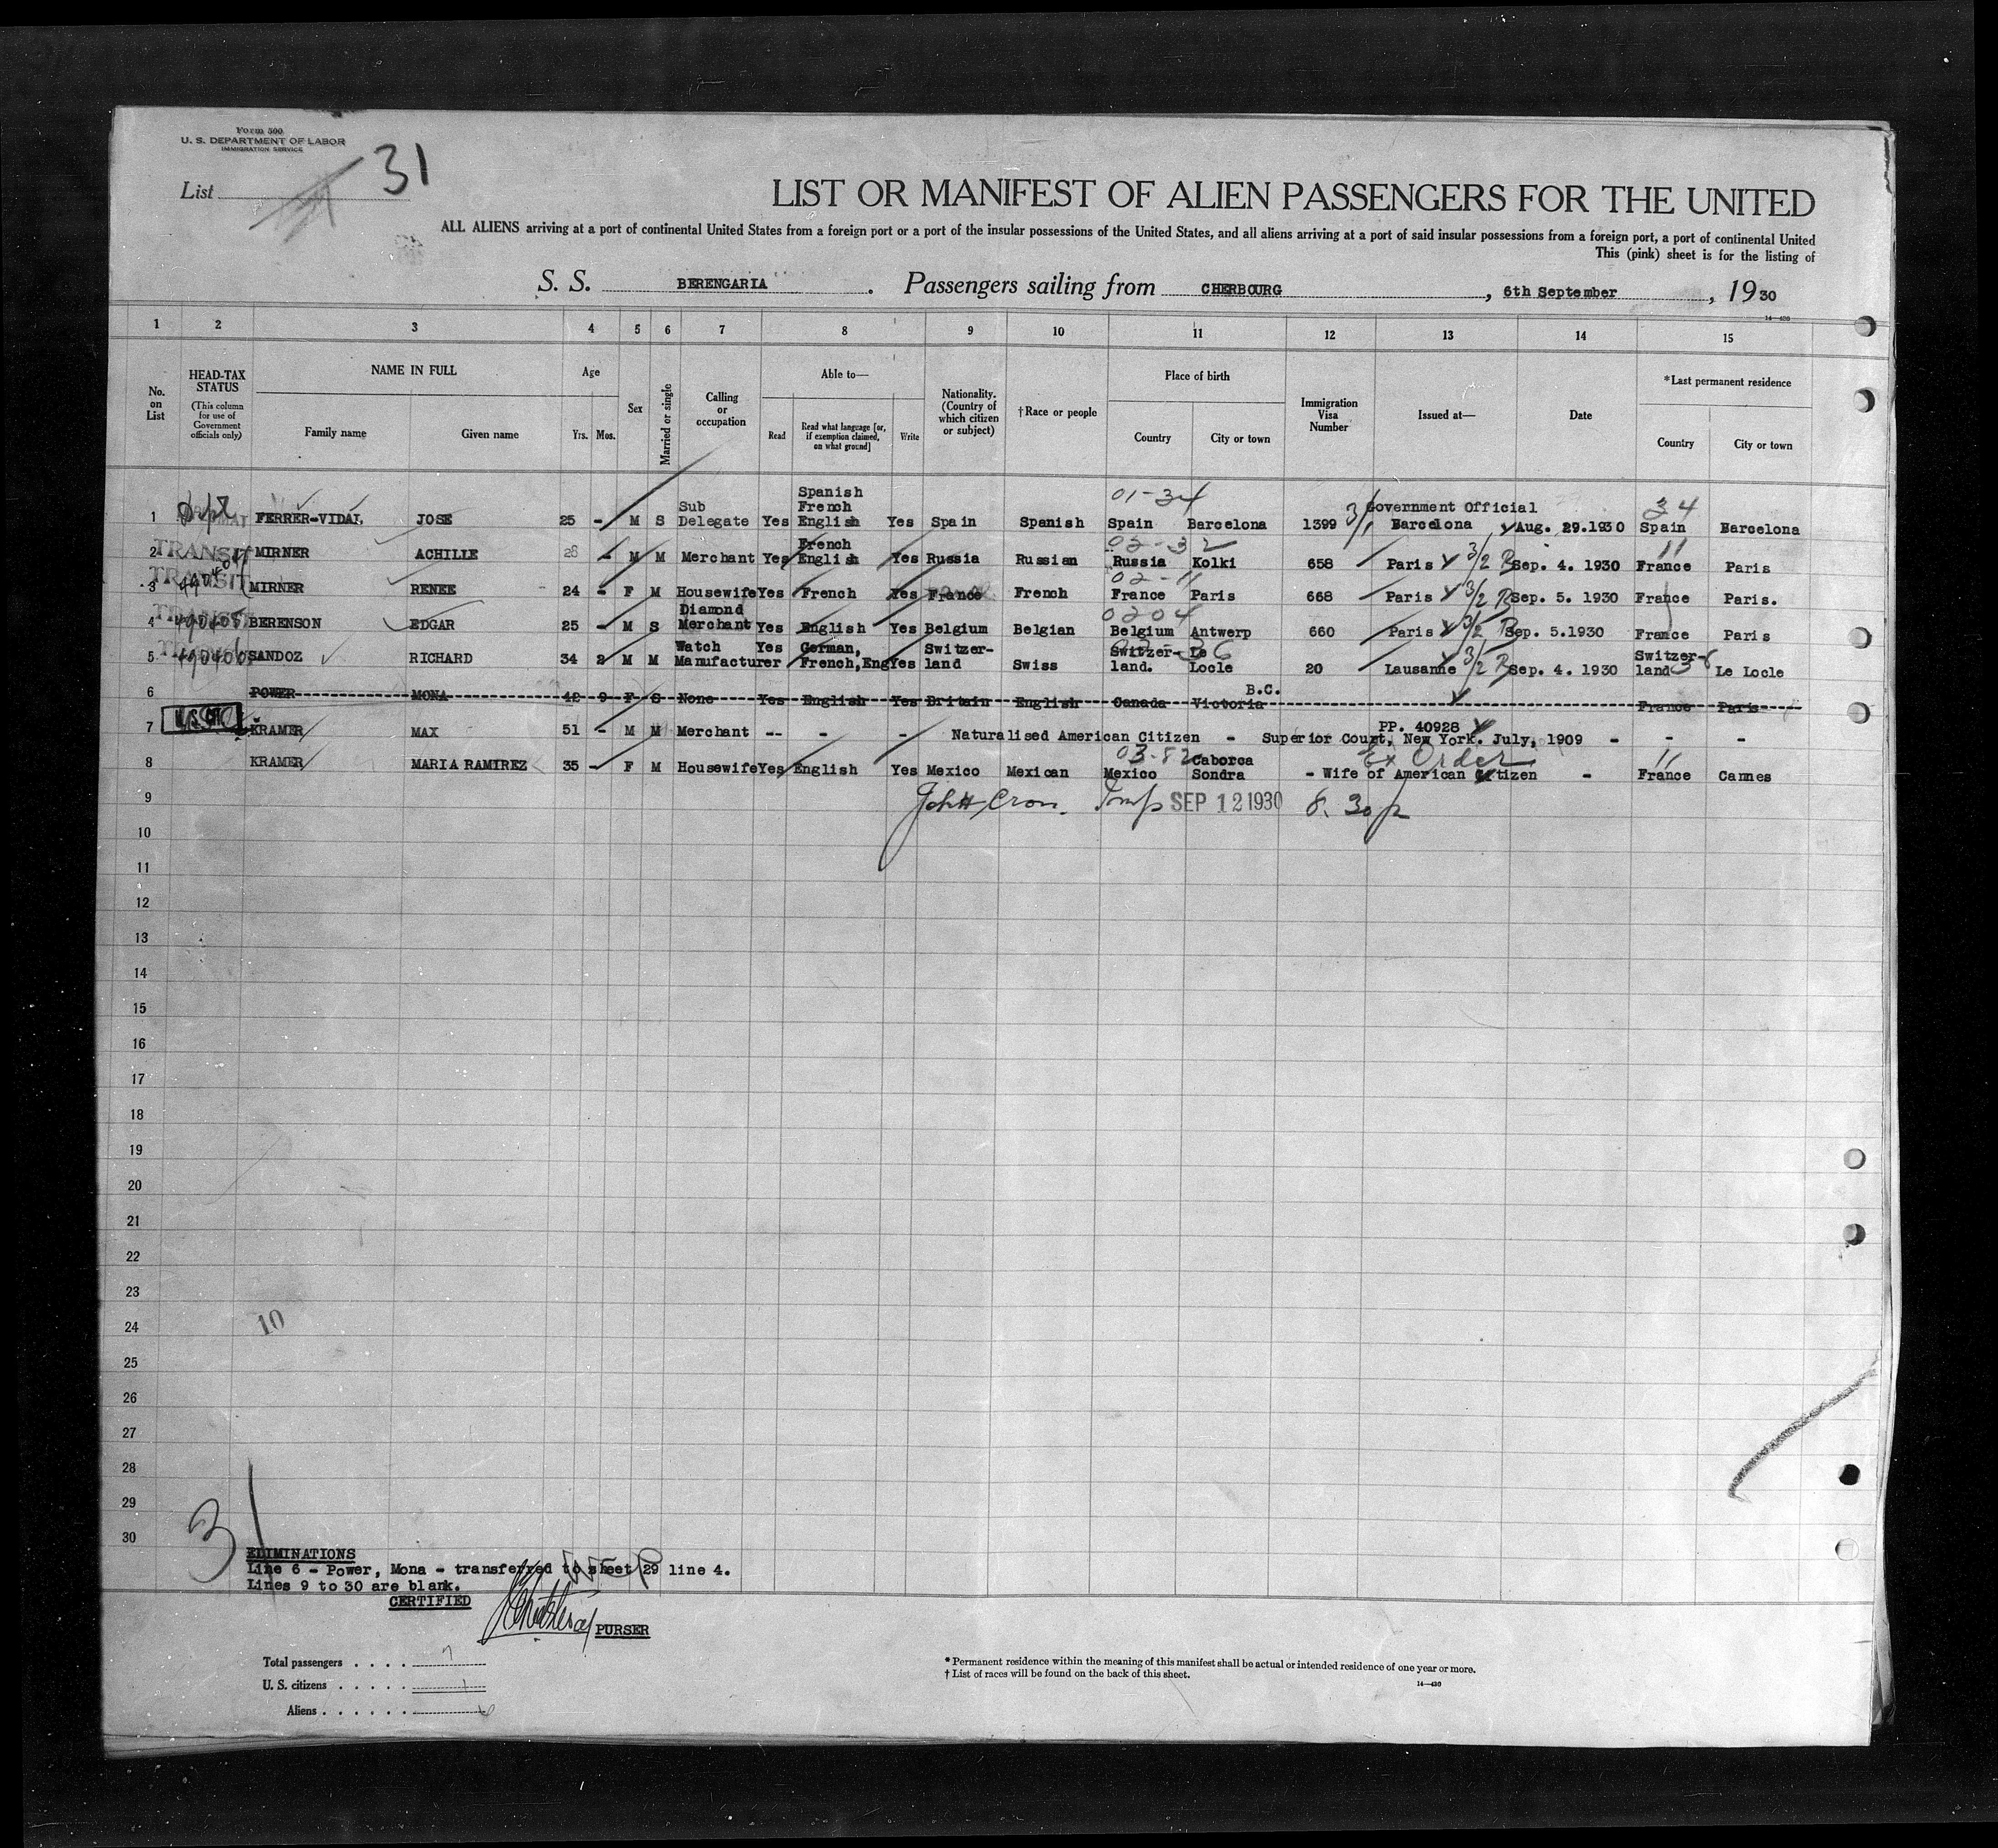 Form 500
U. S. DEPARTMENT OF LABOR
IMMIGRATION SERVICE
List 31
LIST OR MANIFEST OF ALIEN PASSENGERS FOR THE UNITED
ALL ALIENS arriving at a port of continental United States from a foreign port or a port of the insular possessions of the United States, and all aliens arriving at a port of said insular possessions from a foreign port, a port of continental United
This (pink) sheet is for the listing of
S. S. BERENGARIA. Passengers sailing from CHERBOURG, 6th September, 1930
14—430
1 2 3 4 5 6 7 8 9 10 11 12 13 14 15
No. on List
HEAD-TAX STATUS (This column for use of Government officials only)
NAME IN FULL
Family name Given name
Age
Yrs. Mos.
Sex
Married or single
Calling or occupation
Able to—
Read
Read what language [or, if exemption claimed, on what ground]
Write
Nationality. (Country of which citizen or subject)
†Race or people
Place of birth
Country City or town
Immigration Visa Number
Issued at—
Date
*Last permanent residence
Country City or town
01-34 34
1 FERRER-VIDAL JOSE 25 - M S Sub Delegate Yes Spanish French English Yes Spain Spanish Spain Barcelona 1399 Government Official Barcelona Aug. 29.1930 Spain Barcelona
02-32 11
2 TRANSIT MIRNER ACHILLE 28 - M M Merchant Yes French English Yes Russia Russian Russia Kolki 658 Paris 3/2 Sep. 4. 1930 France Paris
02-11
3 TRANSIT MIRNER RENEE 24 - F M Housewife Yes French Yes France French France Paris 668 Paris 3/2 Sep. 5. 1930 France Paris.
0204
4 TRANSIT 490405 BERENSON EDGAR 25 - M S Diamond Merchant Yes English Yes Belgium Belgian Belgium Antwerp 660 Paris 3/2 Sep. 5.1930 France Paris
5 SANDOZ RICHARD 34 2 M M Watch Manufacturer Yes German, French,Eng Yes Switzer-land Swiss Switzer-land. Le Locle 20 Lausanne 3/2 Sep. 4. 1930 Switzer-land Le Locle
6 POWER MONA 42 9 F S None Yes English Yes Britain English Canada Victoria B.C. France Paris
7 KRAMER MAX 51 - M M Merchant -- - - Naturalised American Citizen - PP. 40928 Superior Court, New York. July, 1909 - - -
03-82 Ex Order 11
8 KRAMER MARIA RAMIREZ 35 - F M Housewife Yes English Yes Mexico Mexican Mexico Caborca Sondra - Wife of American Citizen - France Cannes
9 SEP 12 1930 8.30p
10
11
12
13
14
15
16
17
18
19
20
21
22
23
24
10
25
26
27
28
29
30
31
ELIMINATIONS
Line 6 - Power, Mona - transferred to sheet 29 line 4.
Lines 9 to 30 are blank.
CERTIFIED
PURSER
Total passengers . . . . 7
U. S. citizens . . . . . 1
Aliens . . . . . . 6
* Permanent residence within the meaning of this manifest shall be actual or intended residence of one year or more.
† List of races will be found on the back of this sheet.
14—430